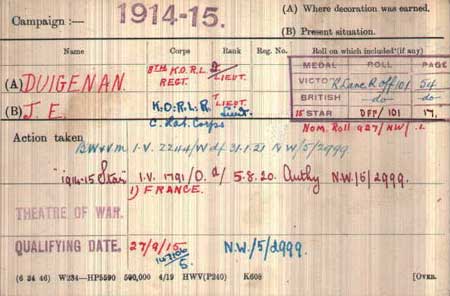 Campaign :— 1914-15.
(A) Where decoration was earned.
(B) Present situation.
Name Corps Rank Reg. No. Roll on which included (if any)
MEDAL ROLL PAGE
(A) DUIGENAN. 8TH K.O.R.L. REGT. 2/LIEUT. VICTORY R Lanc R Off 101 54
BRITISH —do— —do—
(B) J. E. K.O.R.L.R. T/Lieut. 15 STAR OFF/101 17.
C. Lab. Corps Nom. Roll 927/NW/
Action taken
BW&VM I.V. 2244/W d/ 31.1.21 NW/5/2999
"1914-15 Star" I.V. 1791/D. d/ 5.8.20. Authy N.W./5/2999.
1) FRANCE.
THEATRE OF WAR.
QUALIFYING DATE. 27/9/15 N.W./5/2999.
(6 34 46) W234—HP5590 500,000 4/19 HWV(P240) K608 [OVER.